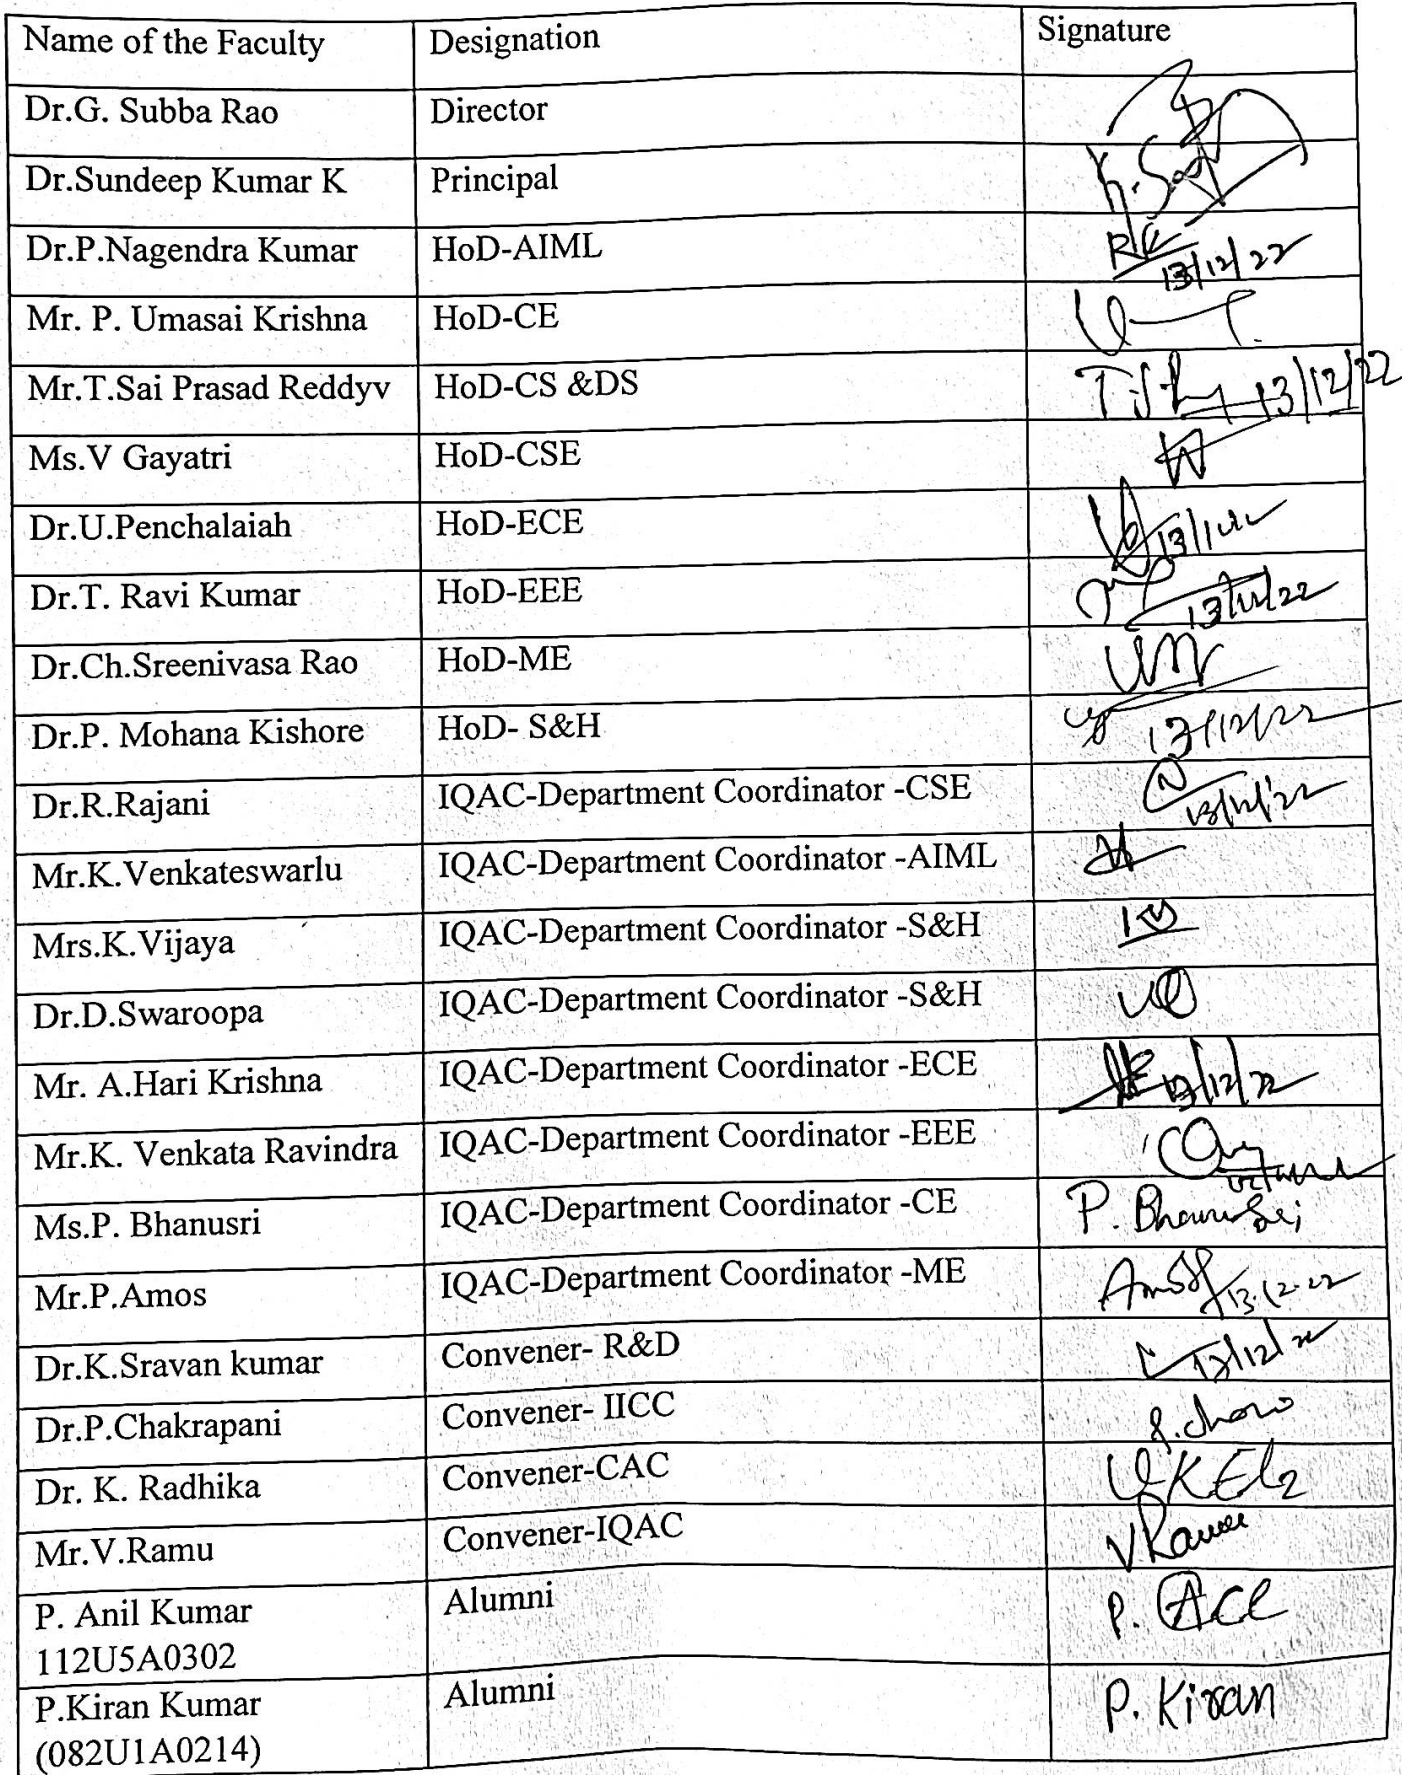 Name of the Faculty Designation Signature
Dr.G. Subba Rao Director
Dr.Sundeep Kumar K Principal
Dr.P.Nagendra Kumar HoD-AIML 13/12/22
Mr. P. Umasai Krishna HoD-CE
Mr.T.Sai Prasad Reddyv HoD-CS &DS 13/12/22
Ms.V Gayatri HoD-CSE
Dr.U.Penchalaiah HoD-ECE
Dr.T. Ravi Kumar HoD-EEE 13/12/22
Dr.Ch.Sreenivasa Rao HoD-ME
Dr.P. Mohana Kishore HoD- S&H 13/12/22
Dr.R.Rajani IQAC-Department Coordinator -CSE 13/12/22
Mr.K.Venkateswarlu IQAC-Department Coordinator -AIML
Mrs.K.Vijaya IQAC-Department Coordinator -S&H
Dr.D.Swaroopa IQAC-Department Coordinator -S&H
Mr. A.Hari Krishna IQAC-Department Coordinator -ECE 13/12/22
Mr.K. Venkata Ravindra IQAC-Department Coordinator -EEE
Ms.P. Bhanusri IQAC-Department Coordinator -CE P. Bhanusri
Mr.P.Amos IQAC-Department Coordinator -ME Amos 13.12.22
Dr.K.Sravan kumar Convener- R&D 13/12/22
Dr.P.Chakrapani Convener- IICC
Dr. K. Radhika Convener-CAC
Mr.V.Ramu Convener-IQAC V Ramu
P. Anil Kumar Alumni
112U5A0302
P.Kiran Kumar Alumni P. Kiran
(082U1A0214)